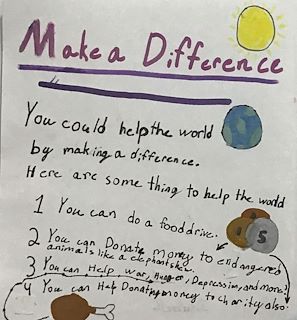 Make a Difference
You could help the world
by making a difference.
Here are some thing to help the world
1 You can do a food drive.
2 You can Donate money to endangered
animals like a elephant
3 You can Help, war, Hunger, Depression, and more!
4 You can Help Donating money to charity also.
$